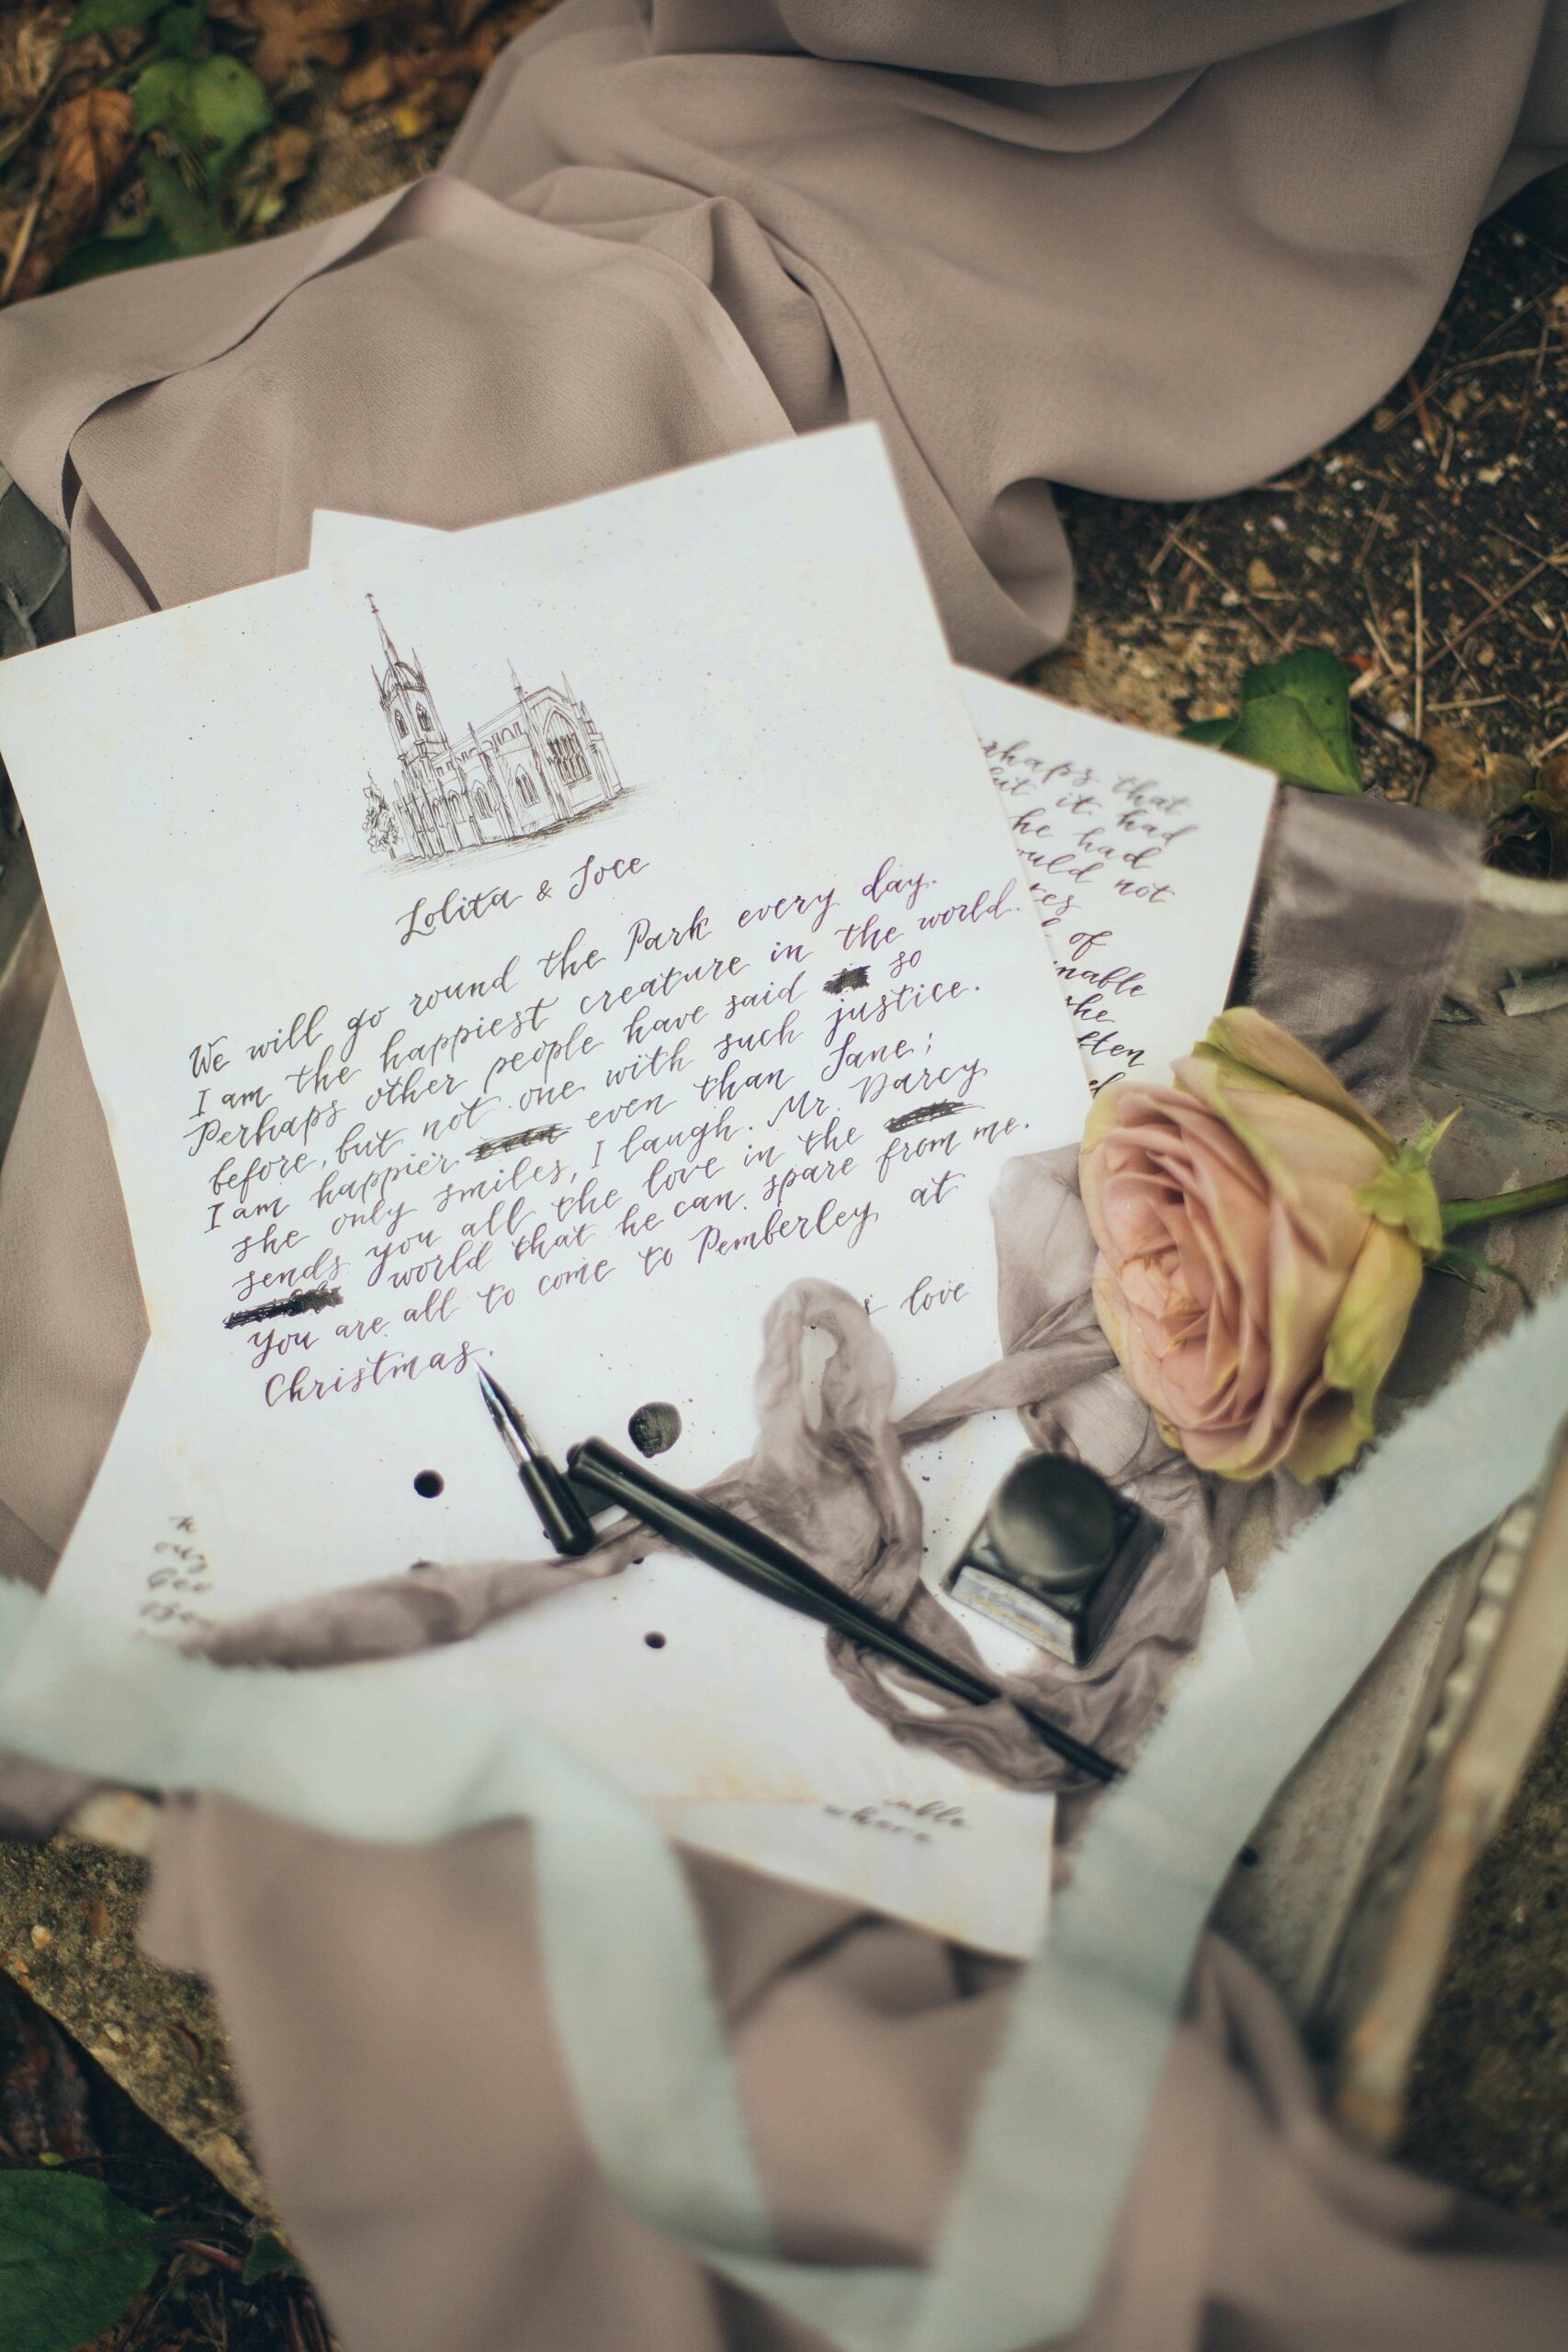 Lolita & Joce
We will go round the Park every day.
I am the happiest creature in the world.
Perhaps other people have said so
before, but not one with such justice.
I am happier even even than Jane;
she only smiles, I laugh. Mr. Darcy
sends you all the love in the
world that he can spare from me.
You are all to come to Pemberley at
Christmas.
love
that
it had
he had
not
of
she
where